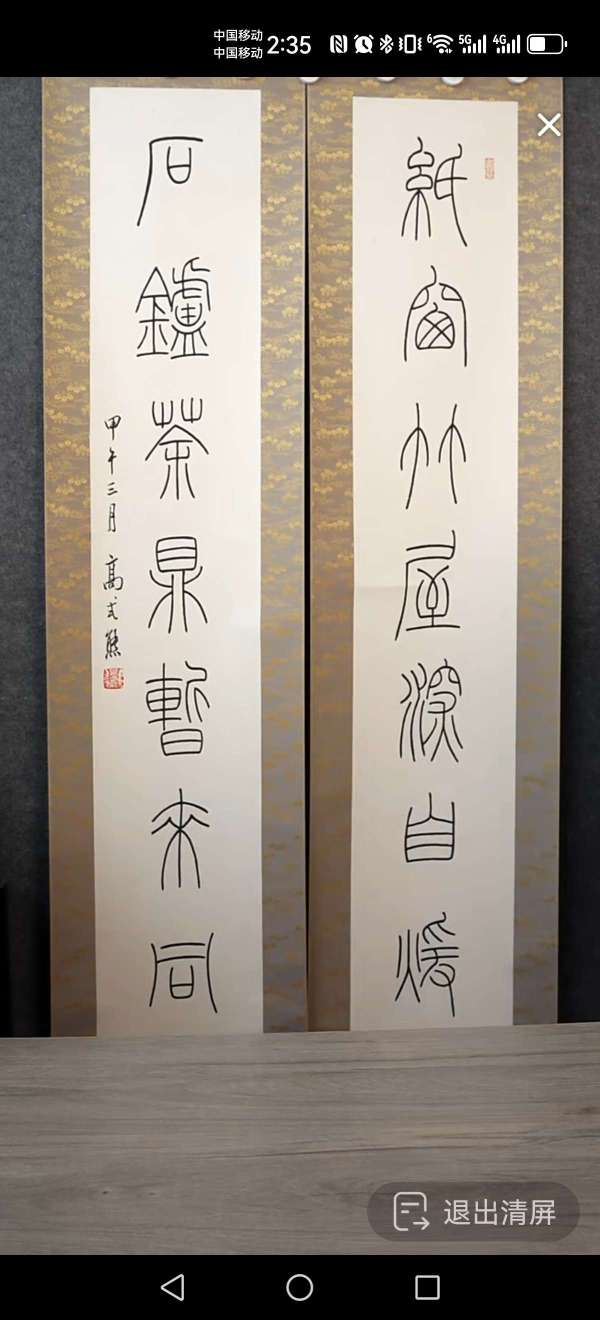 中国移动
中国移动
2:35
6 5G 4G
紙窗竹屋深自暖
石鑪茶鼎暫來同
甲午三月 高式熊
退出清屏